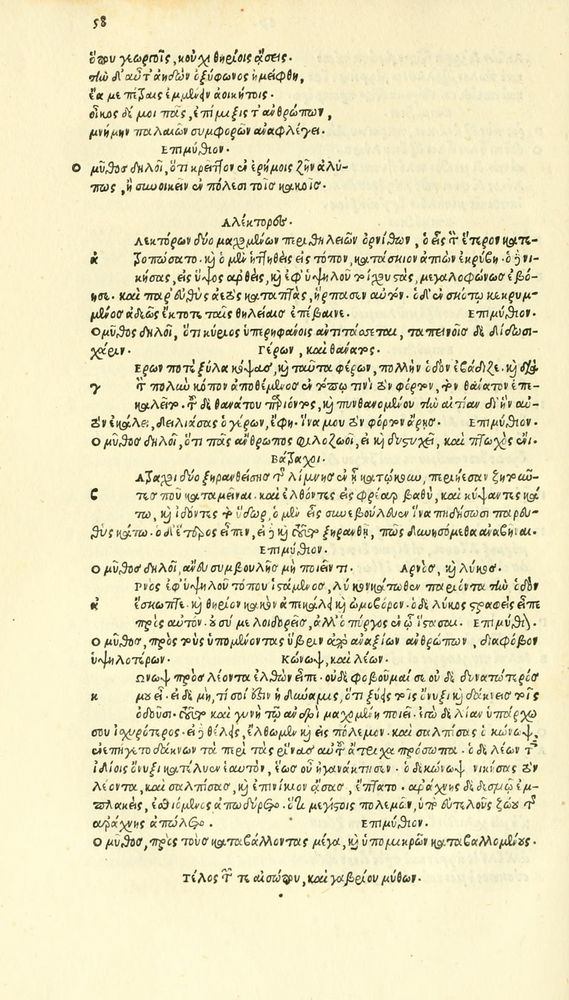 58
ὅπου γεωργοῖς, κοὐχὶ θηρίοις ᾄσεις.
τὼ δ' αὖτ' ἀηδὼν ὀξύφωνος ἠμείφθη,
ἔα με πέτραις ἐμμένειν ἀοικήτοις.
οἶκος δέ μοι πᾶς, ἐπίμιξις τ' ἀνθρώπων,
μνήμην παλαιῶν συμφορῶν ἀναφλέγει.
Ἐπιμύθιον.
Ο μῦθος δηλοῖ, ὅτι κρεῖττον ἐν ἐρήμοις ζῆν ἀλύ-
πως, ἢ συνοικεῖν ἐν πόλεσι τοῖς κακοῖς.
Ἀλέκτορες.
Λεκτόρων δύο μαχομένων περὶ θηλειῶν ὀρνίθων, ὁ εἷς τὸν ἕτερον κατε-
α τροπώσατο. καὶ ὁ μὲν ἡττηθεὶς εἰς τόπον κατάσκιον ἀπιὼν ἐκρύβη. ὁ δὲ νι-
κήσας, εἰς ὕψος ἀρθεὶς, καὶ ἐφ' ὑψηλοῦ τοίχου στὰς, μεγαλοφώνως ἐβό-
ησε. καὶ παρ' εὐθὺς ἀετὸς καταπτὰς, ἥρπασεν αὐτόν. ὁ δ' ἐν σκότῳ κεκρυμ-
μένος ἀδεῶς ἔκτοτε ταῖς θηλείαις ἐπέβαινε. Ἐπιμύθιον.
Ο μῦθος δηλοῖ, ὅτι κύριος ὑπερηφάνοις ἀντιτάσσεται, ταπεινοῖς δὲ δίδωσι
χάριν. Γέρων, καὶ θάνατος.
Ερων ποτὲ ξύλα κόψας, καὶ ταῦτα φέρων, πολλὴν ὁδὸν ἐβάδιζε. καὶ διὰ
γ τὸν πολὺν κόπον ἀποθέμενος ἐν τόπῳ τινὶ τὸν φόρτον, τὸν θάνατον ἐπε-
καλεῖτο. τοῦ δὲ θανάτου παρόντος, καὶ πυνθανομένου τὴν αἰτίαν δι' ἣν αὐ-
τὸν ἐκάλει, δειλιάσας ὁ γέρων, ἔφη. ἵνα μου τὸν φόρτον ἄρῃς. Ἐπιμύθιον.
Ο μῦθος δηλοῖ, ὅτι πᾶς ἄνθρωπος φιλοζωεῖ, εἰ καὶ δυστυχεῖ, καὶ πτωχός ἐστι.
Βάτραχοι.
Ατραχοι δύο ξηρανθείσης τῆς λίμνης ἐν ᾗ κατῴκουν, περιῄεσαν ζητοῦν-
ς τες ποῦ καταμεῖναι. καὶ ἐλθόντες εἰς φρέαρ βαθὺ, καὶ κύψαντες κά
τω, καὶ ἰδόντες τὸ ὕδωρ, ὁ μὲν εἷς συνεβούλευεν ἵνα πηδήσωσι παρευ-
θὺς κάτω. ὁ δ' ἕτερος εἶπεν, εἰ καὶ τοῦτο ξηρανθῇ, πῶς δυνησόμεθα ἀναβῆναι.
Ἐπιμύθιον.
Ο μῦθος δηλοῖ, ἄνευ συμβουλῆς μὴ ποιεῖν τι. Ἀρνὸς, καὶ λύκος.
Ρνὸς ἐφ' ὑψηλοῦ τόπου ἱστάμενος, λύκον κάτωθεν παριόντα τὴν ὁδὸν
α ἔσκωπτε. καὶ θηρίον κακὸν ἀπεκάλει καὶ ὠμοβόρον. ὁ δὲ λύκος στραφεὶς εἶπε
πρὸς αὐτόν. οὐ σύ με λοιδορεῖς, ἀλλ' ὁ πύργος ἐν ᾧ ἵστασαι. Ἐπιμύθιον.
Ο μῦθος, πρὸς τοὺς ὑπομένοντας ὕβριν ἀπὸ ἀναξίων ἀνθρώπων, διὰ φόβον
ὑψηλοτέρων. Κώνωψ, καὶ λέων.
Ωνωψ πρὸς λέοντα ἐλθὼν εἶπε. οὐδὲ φοβοῦμαί σε οὐδὲ δυνατώτερός
κ μου εἶ. εἰ δὲ μὴ, τί σοί ἐστιν ἡ δύναμις, ὅτι ξύεις τοῖς ὄνυξι καὶ δάκνεις τοῖς
ὀδοῦσι. τοῦτο καὶ γυνὴ τῷ ἀνδρὶ μαχομένη ποιεῖ. ἐγὼ δὲ λίαν ὑπάρχω
σου ἰσχυρότερος. εἰ δὲ θέλεις, ἔλθωμεν καὶ εἰς πόλεμον. καὶ σαλπίσας ὁ κώνωψ,
ἐνεπήγετο δάκνων τὰ περὶ τὰς ῥῖνας αὐτοῦ ἄτριχα πρόσωπα. ὁ δὲ λέων τοῖς
ἰδίοις ὄνυξι κατέλυεν ἑαυτὸν, ἕως οὗ ἠγανάκτησεν. ὁ δὲ κώνωψ νικήσας τὸν
λέοντα, καὶ σαλπίσας, καὶ ἐπινίκιον ᾄσας, ἔπτατο. ἀράχνης δὲ δεσμῷ ἐμ-
πλακεὶς, ἐσθιόμενος ἀπωδύρετο. ὅτι μεγίστοις πολεμῶν, ὑπὸ εὐτελοῦς ζώου τῆς
ἀράχνης ἀπώλετο. Ἐπιμύθιον.
Ο μῦθος, πρὸς τοὺς καταβάλλοντας μέγα, καὶ ὑπὸ μικρῶν καταβαλλομένους.
Τέλος τῶν τε αἰσώπου, καὶ γαβρίου μύθων.